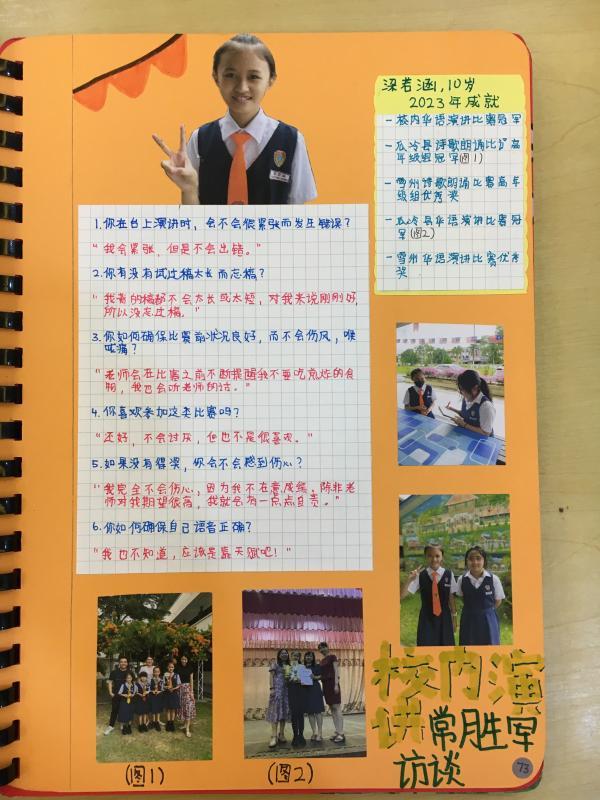 1. 你在台上演讲时，会不会很紧张而发生错误？
"我会紧张，但是不会出错。"
2. 你有没有试过稿太长而忘稿？
"我看的稿都不会太长或太短，对我来说刚刚好，
所以没忘过稿。"
3. 你如何确保比赛前状况良好，而不会伤风，喉
咙痛？
"老师会在比赛之前不断提醒我不要吃煎炸的食
物，我也会听老师的话。"
4. 你喜欢参加这类比赛吗？
"还好，不会讨厌，但也不是很喜欢。"
5. 如果没有得奖，你会不会感到伤心？
"我完全不会伤心，因为我不在意成绩。陈非老
师对我期望很高，我就会有一点点自责。"
6. 你如何确保自己语音正确？
"我也不知道，应该是靠天赋吧！"
梁若涵，10岁
2023年成就
- 校内华语演讲比赛冠军
- 瓜冷县诗歌朗诵比赛高
年级组冠军(图1)
- 雪州诗歌朗诵比赛高年
级组优秀奖
- 瓜冷县华语演讲比赛冠
军(图2)
- 雪州华语演讲比赛优秀
奖
(图1)
(图2)
校内演
讲常胜军
访谈
73